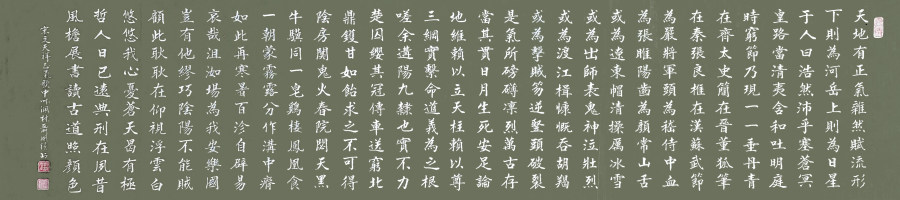 天地有正氣雜然賦流形
下則為河岳上則為日星
于人曰浩然沛乎塞蒼冥
皇路當清夷含和吐明庭
時窮節乃現一一垂丹青
在齊太史簡在晉董狐筆
在秦張良椎在漢蘇武節
為嚴將軍頭為嵇侍中血
為張睢陽齒為顏常山舌
或為遼東帽清操厲冰雪
或為出師表鬼神泣壯烈
或為渡江楫慷慨吞胡羯
或為擊賊笏逆豎頭破裂
是氣所磅礴凜烈萬古存
當其貫日月生死安足論
地維賴以立天柱賴以尊
三綱實繫命道義為之根
嗟余遘陽九隸也實不力
楚囚纓其冠傳車送窮北
鼎鑊甘如飴求之不可得
陰房闃鬼火春院閟天黑
牛驥同一皂雞棲鳳凰食
一朝蒙霧露分作溝中瘠
如此再寒暑百沴自辟易
哀哉沮洳場為我安樂國
豈有他繆巧陰陽不能賊
顧此耿耿在仰視浮雲白
悠悠我心憂蒼天曷有極
哲人日已遠典刑在夙昔
風檐展書讀古道照顏色
宋文天祥正氣歌